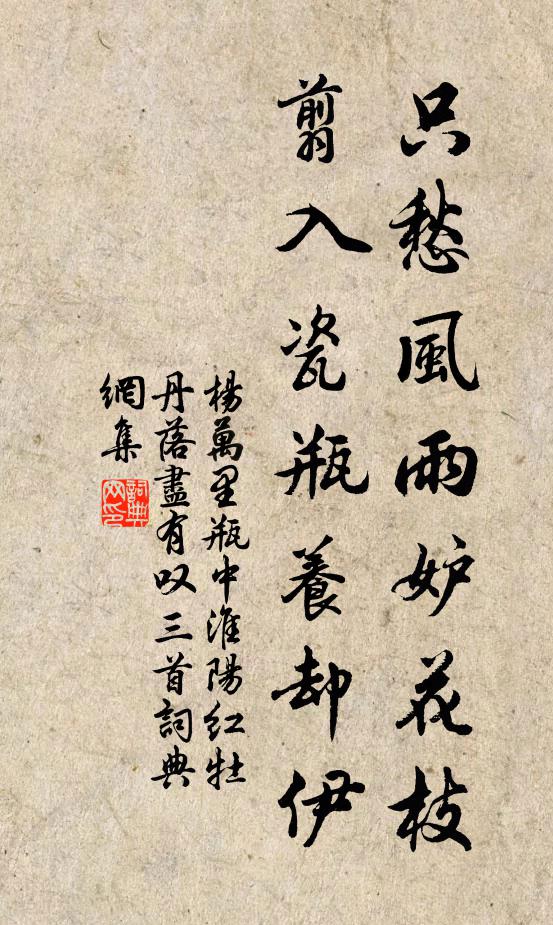 只愁風雨妒花枝
翦入瓷瓶養却伊
楊萬里瓶中淮陽紅牡
丹落盡有叹三首詞典
網集
詞典
网印